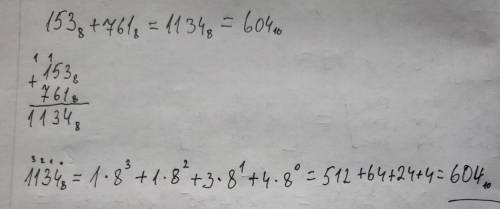 153₈ + 761₈ = 1134₈ = 604₁₀
1 1
+ 153₈
761₈
1134₈
3 2 1 0
1134₈ = 1·8³ + 1·8² + 3·8¹ + 4·8⁰ = 512 + 64 + 24 + 4 = 604₁₀